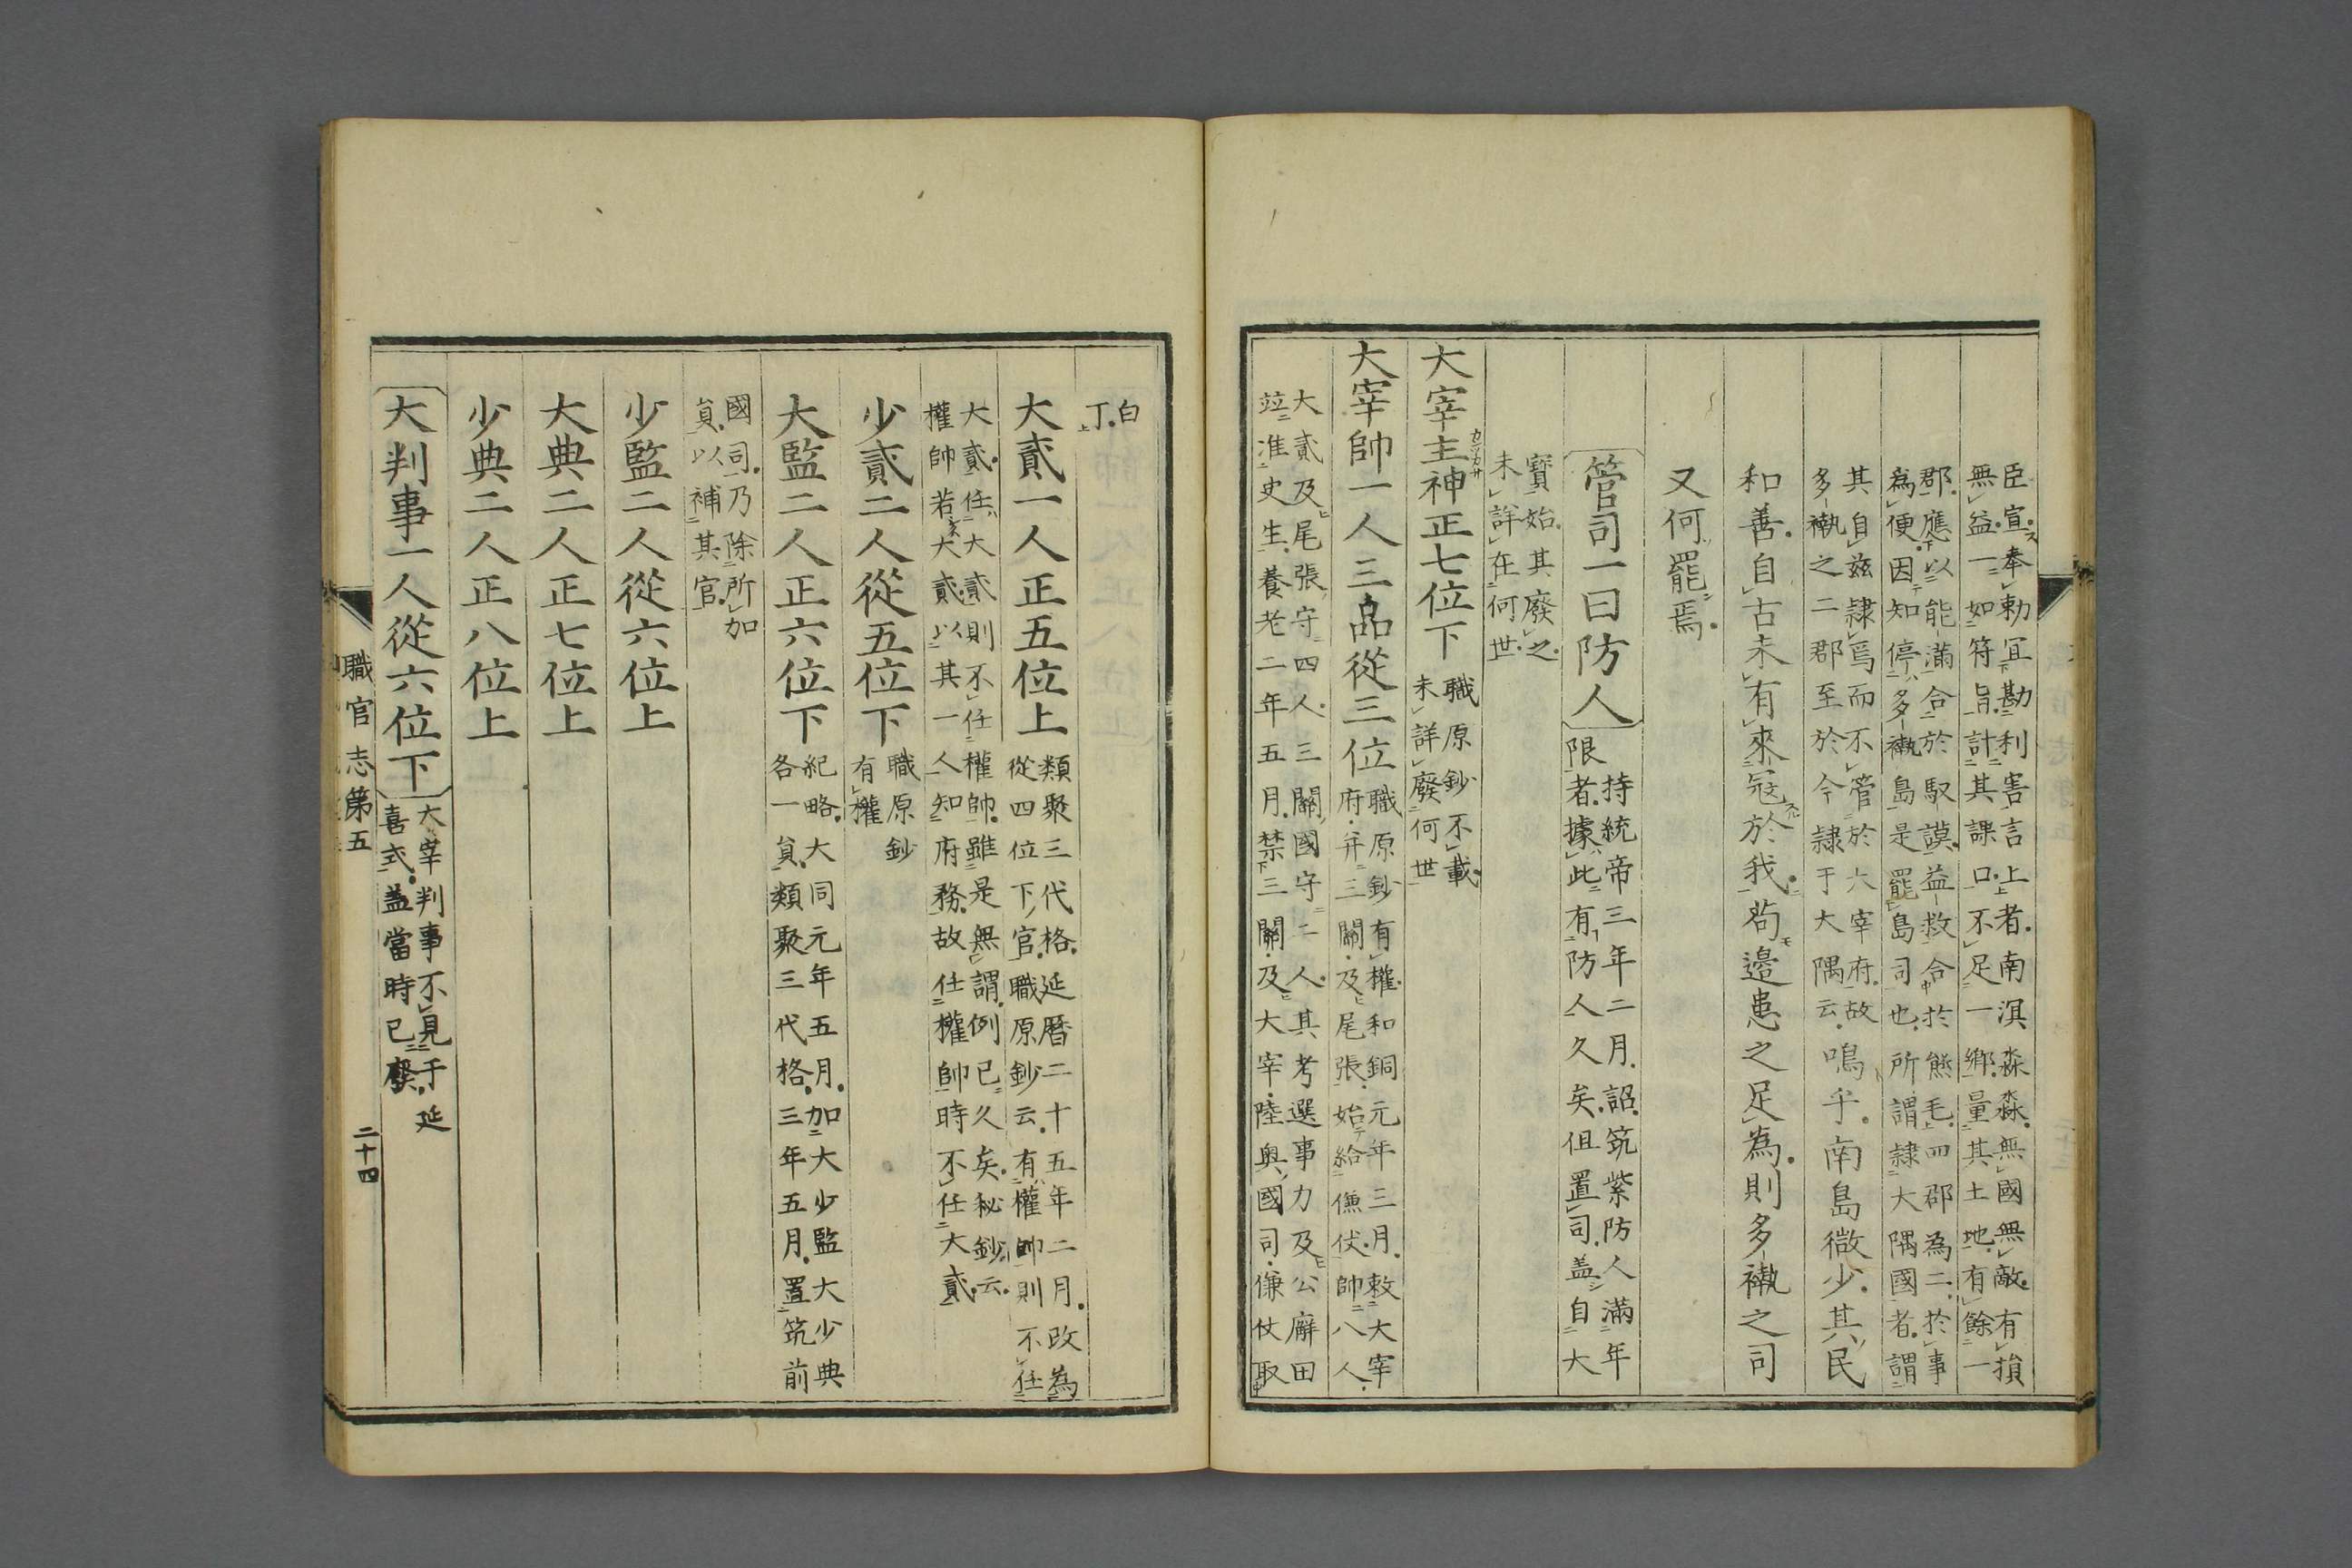 臣宣奉勅宜勘利害言上者南溟淼淼無國無敵有損
無益一如符旨計其課口不足一鄉量其土地有餘一
郡應以能滿合於馭謨益救合於熊毛四郡為二於事
為便因知停多褹島是罷島司也所謂隷大隅國者謂
其自兹隷焉而不管於大宰府故
多褹之二郡至於今隷于大隅云
嗚乎南島微少其民
和善自古未有來冦於我苟邉患之足為則多褹之司
又何罷焉
管司一曰防人
持統帝三年二月詔筑紫防人滿年
限者據此有防人久矣但置司盖自大
寳始其廢之
未詳在何世
大宰主神正七位下
カンツカサ
職原鈔不載
未詳廢何世
大宰帥一人三品從三位
職原鈔有權和銅元年三月敕大宰
府并三關及尾張始給傔仗帥八人
大貳及尾張守四人三關國守二人其考選事力及公廨田
竝准史生養老二年五月禁三關及大宰陸奥國司傔仗取
白
丁
大貳一人正五位上
類聚三代格延暦二十五年二月改為
從四位下官職原鈔云有權帥則不任
大貳任大貳則不任權帥雖是無謂例已久矣秘鈔云
權帥若大貳以其一人知府務故任權帥時不任大貳
少貳二人從五位下
職原鈔
有權
大監二人正六位下
紀略大同元年五月加大少監大少典
各一員類聚三代格三年五月置筑前
國司乃除所加
員以補其官
少監二人從六位上
大典二人正七位上
少典二人正八位上
大判事一人從六位下
大宰判事不見于延
喜式盖當時已廢
職官志第五
二十四